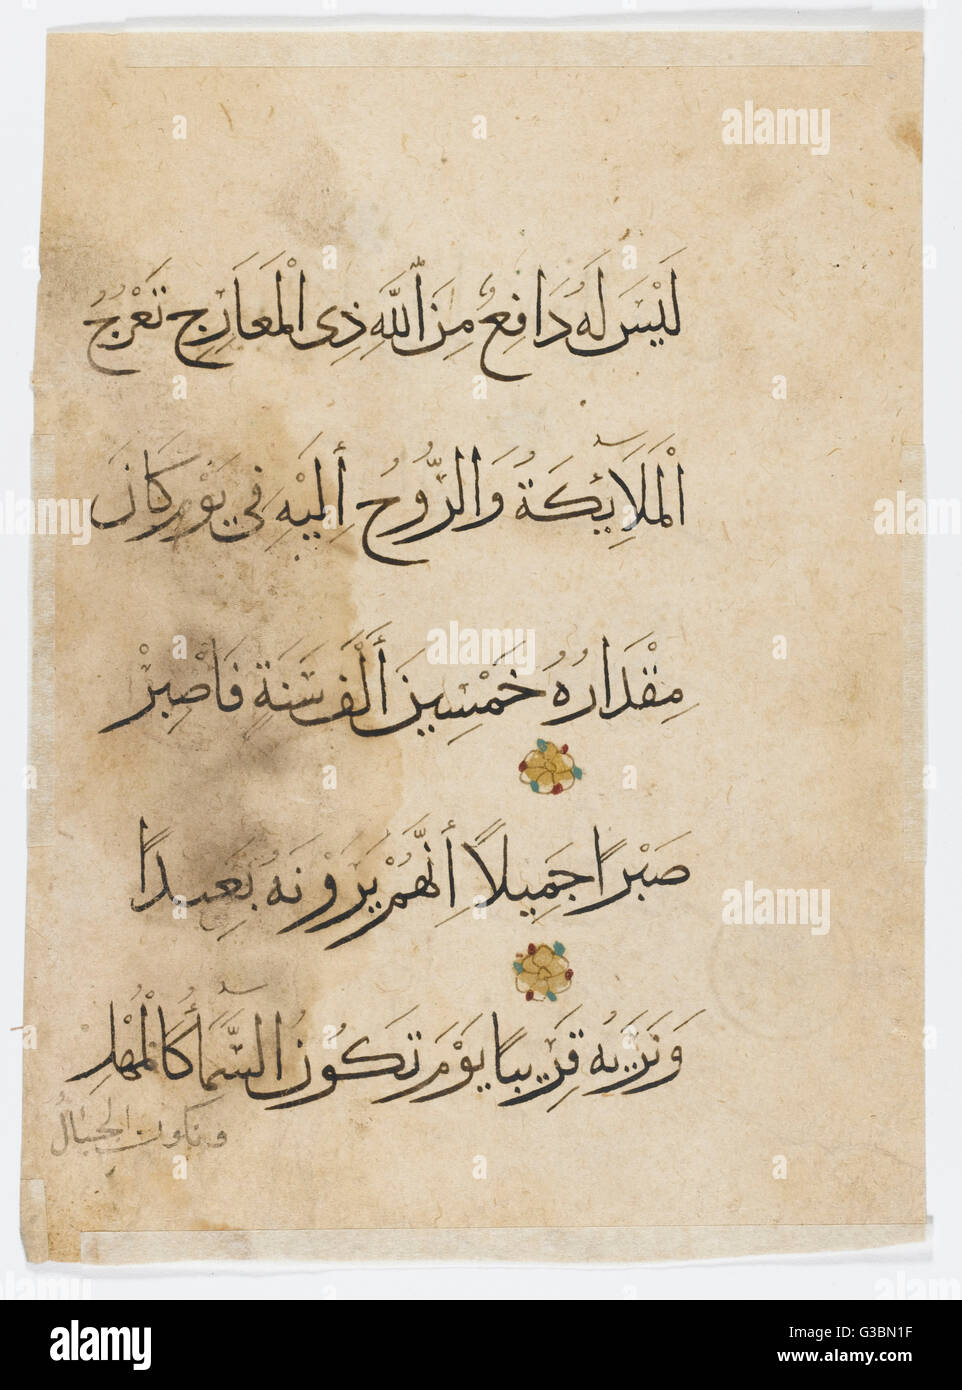 لَيْسَ لَهُ دَافِعٌ مِنَ اللَّهِ ذِى الْمَعَارِجِ تَعْرُجُ
الْمَلَائِكَةُ وَالرُّوحُ إِلَيْهِ فِي يَوْمٍ كَانَ
مِقْدَارُهُ خَمْسِينَ أَلْفَ سَنَةٍ فَاصْبِرْ
صَبْرًا جَمِيلًا إِنَّهُمْ يَرَوْنَهُ بَعِيدًا
وَنَرَيهُ قَرِيبًا يَوْمَ تَكُونُ السَّمَاءُ كَالْمُهْلِ
وتكون الجبالُ
alamy
Image ID: G3BN1F
www.alamy.com